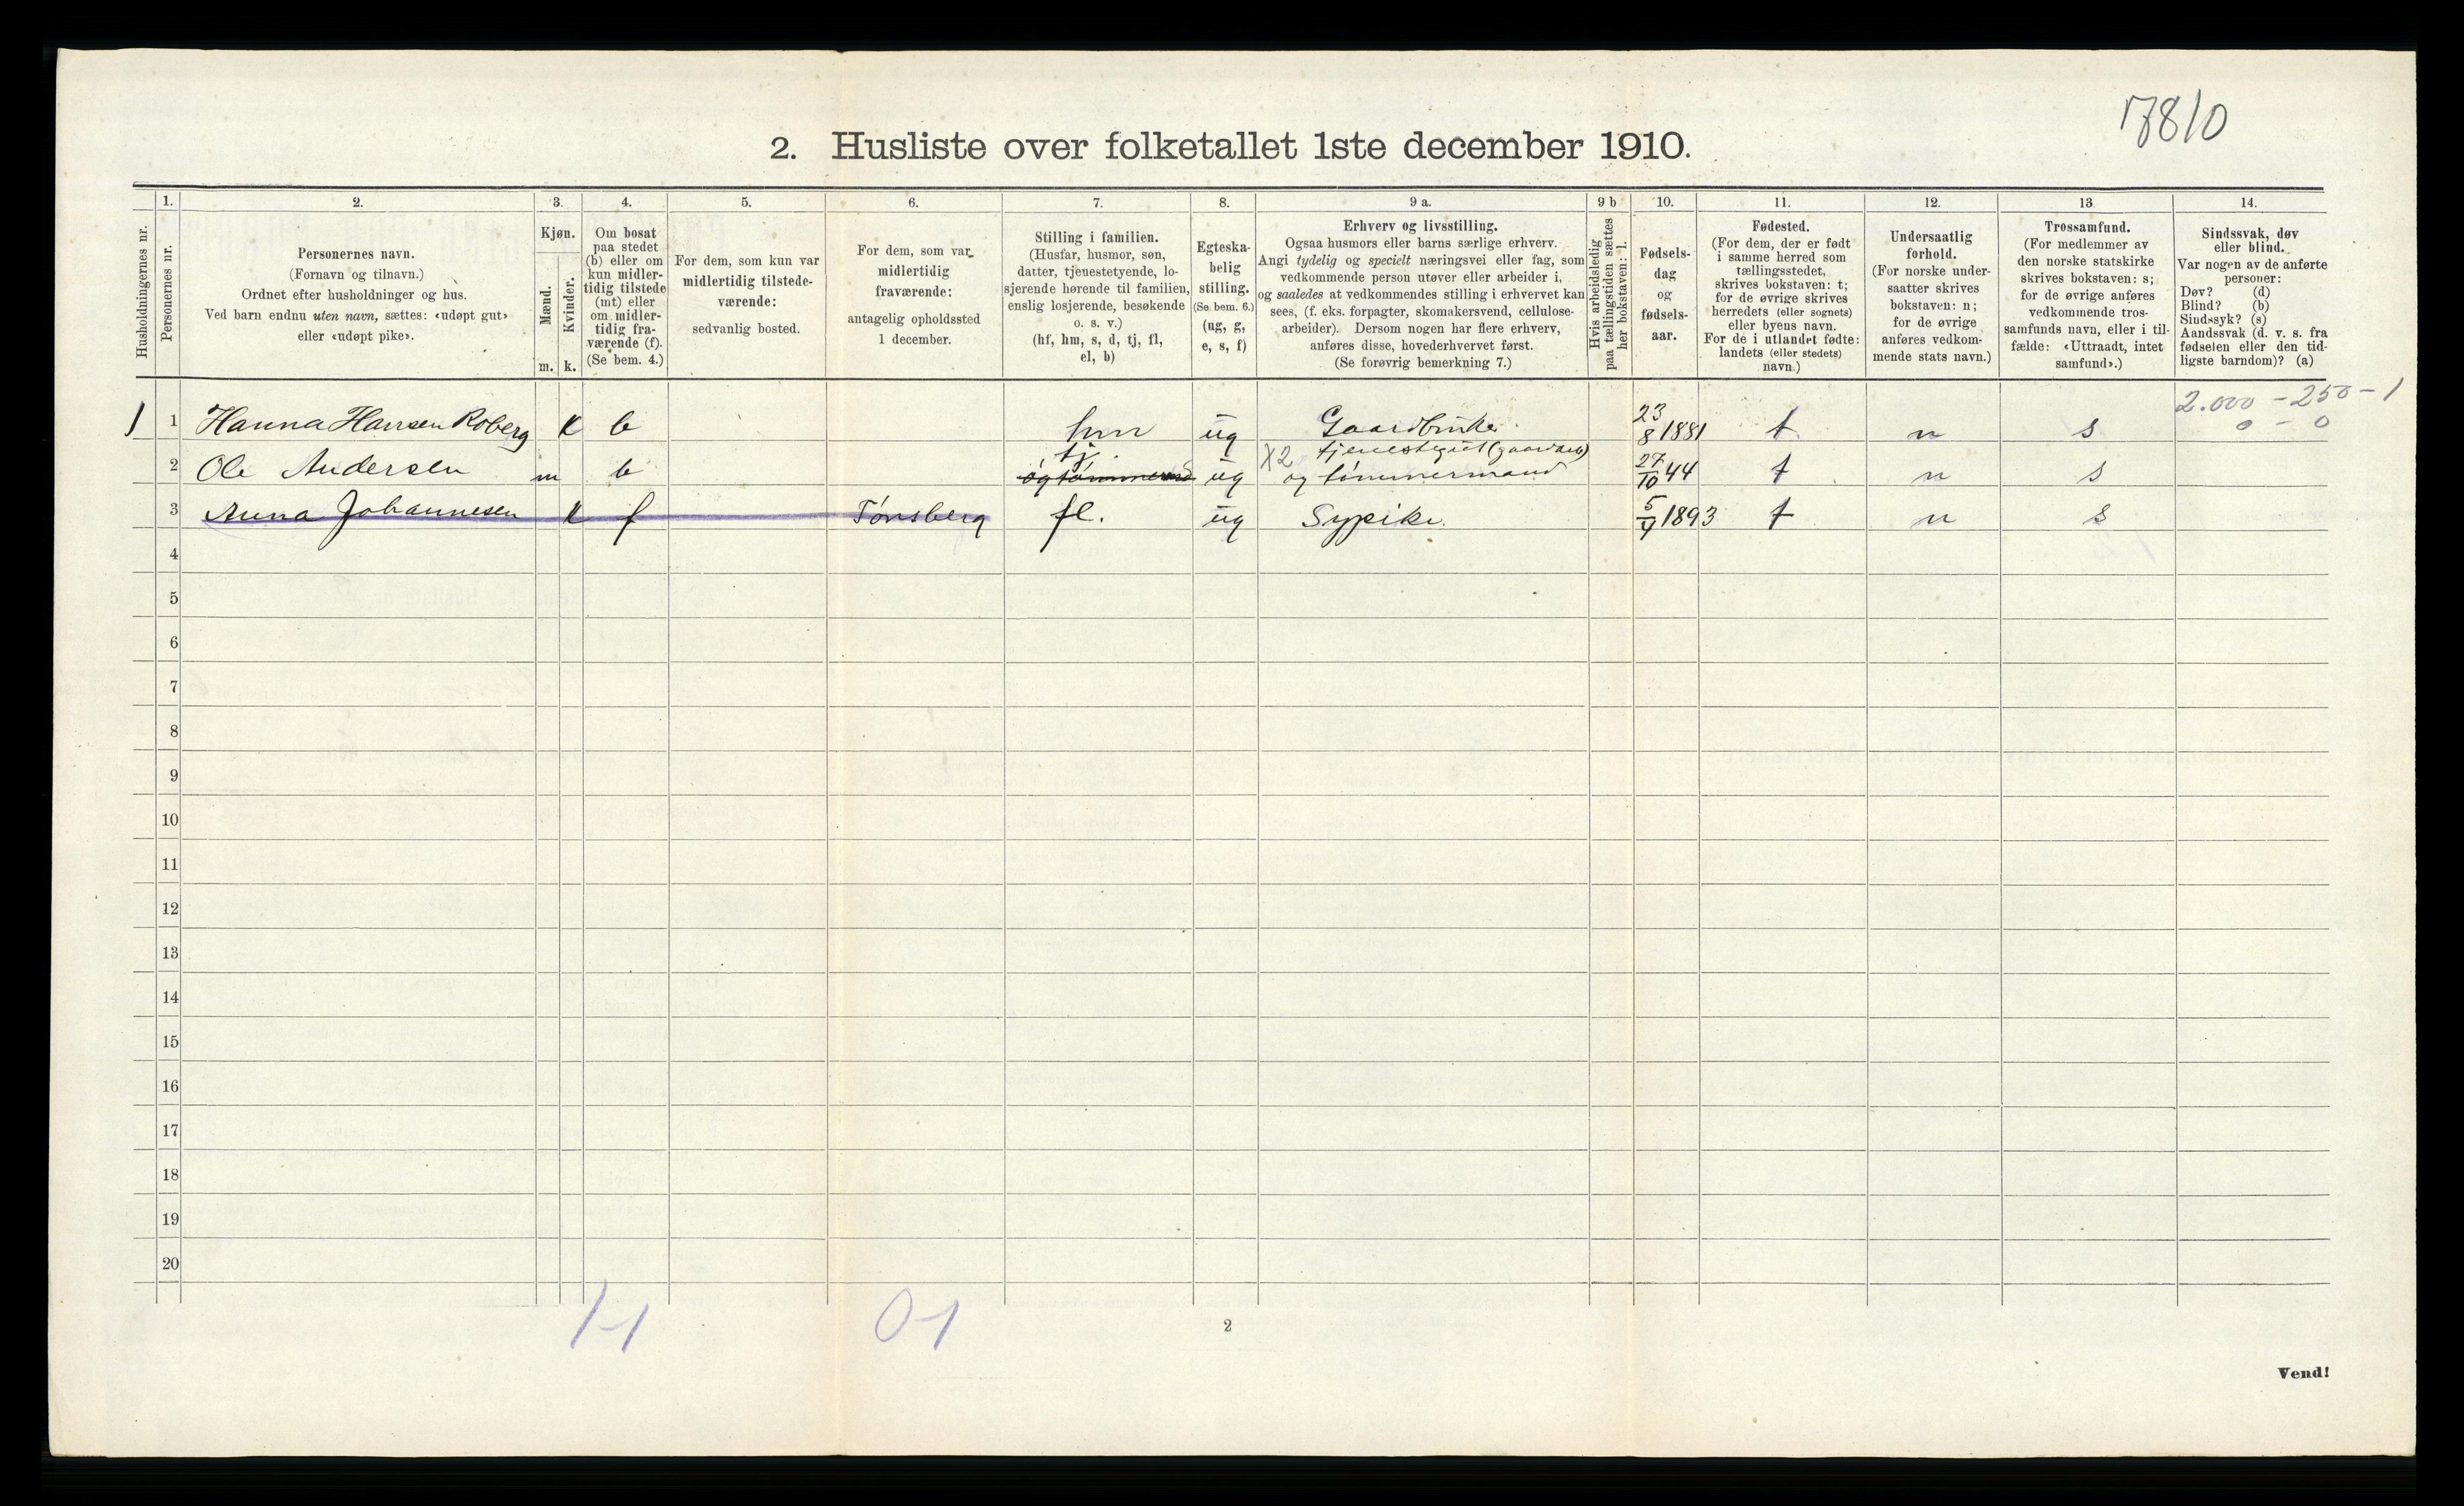 17810
2. Husliste over folketallet 1ste december 1910.
Husholdningernes nr.
1.
Personernes nr.
2.
Personernes navn.
(Fornavn og tilnavn.)
Ordnet efter husholdninger og hus.
Ved barn endnu uten navn, sættes: «udøpt gut»
eller «udøpt pike».
3.
Kjøn.
Mænd.
Kvinder.
m. k.
4.
Om bosat
paa stedet
(b) eller om
kun midler-
tidig tilstede
(mt) eller
om midler-
tidig fra-
værende (f).
(Se bem. 4.)
5.
For dem, som kun var
midlertidig tilstede-
værende:
sedvanlig bosted.
6.
For dem, som var
midlertidig
fraværende:
antagelig opholdssted
1 december.
7.
Stilling i familien.
(Husfar, husmor, søn,
datter, tjenestetyende, lo-
sjerende hørende til familien,
enslig losjerende, besøkende
o. s. v.)
(hf, hm, s, d, tj, fl,
el, b)
8.
Egteska-
belig
stilling.
(Se bem. 6.)
(ug, g,
e, s, f)
9 a.
Erhverv og livsstilling.
Ogsaa husmors eller barns særlige erhverv.
Angi tydelig og specielt næringsvei eller fag, som
vedkommende person utøver eller arbeider i,
og saaledes at vedkommendes stilling i erhvervet kan
sees, (f. eks. forpagter, skomakersvend, cellulose-
arbeider). Dersom nogen har flere erhverv,
anføres disse, hovederhvervet først.
(Se forøvrig bemerkning 7.)
9 b
Hvis arbeidsledig
paa tællingstiden sættes
her bokstaven: l.
10.
Fødsels-
dag
og
fødsels-
aar.
11.
Fødested.
(For dem, der er født
i samme herred som
tællingsstedet,
skrives bokstaven: t;
for de øvrige skrives
herredets (eller sognets)
eller byens navn.
For de i utlandet fødte:
landets (eller stedets)
navn.)
12.
Undersaatlig
forhold.
(For norske under-
saatter skrives
bokstaven: n;
for de øvrige
anføres vedkom-
mende stats navn.)
13.
Trossamfund.
(For medlemmer av
den norske statskirke
skrives bokstaven: s;
for de øvrige anføres
vedkommende tros-
samfunds navn, eller i til-
fælde: «Uttraadt, intet
samfund».)
14.
Sindssvak, døv
eller blind.
Var nogen av de anførte
personer:
Døv? (d)
Blind? (b)
Sindssyk? (s)
Aandssvak (d. v. s. fra
fødselen eller den tid-
ligste barndom)? (a)
2.000 - 250 - 1
0 - 0
1 1 Hanna Hansen Roberg k b hm ug Gaardbruker 23/8 1881 t n s
2 Ole Andersen m b tj. og tømmermand ug X2 tjenestegut (gaardarb) og tømmermand 27/10 44 t n s
3 Anna Johannesen k f Tønsberg fl. ug Sypike. 5/9 1893 t n s
4
5
6
7
8
9
10
11
12
13
14
15
16
17
18
19
20
1-1
0-1
2
Vend!